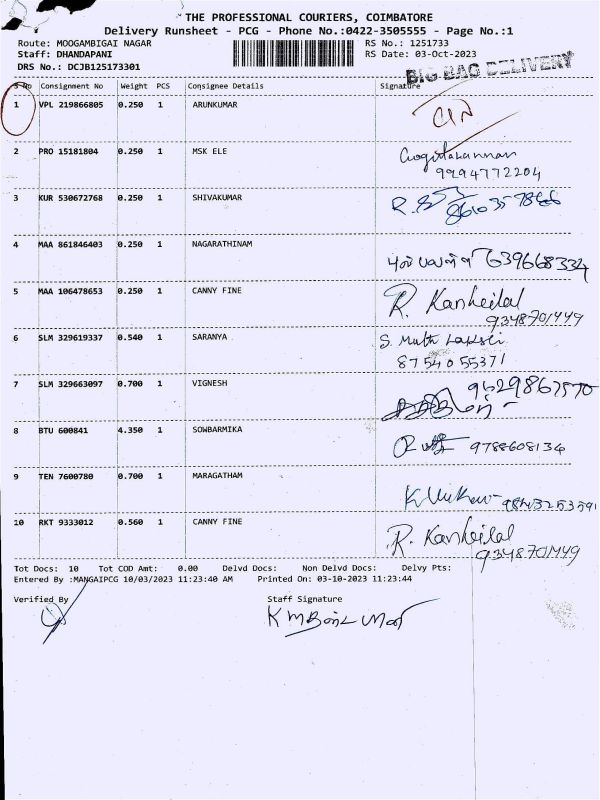 THE PROFESSIONAL COURIERS, COIMBATORE
Delivery Runsheet - PCG - Phone No.:0422-3505555 - Page No.:1
Route: MOOGAMBIGAI NAGAR RS No.: 1251733
Staff: DHANDAPANI RS Date: 03-Oct-2023
DRS No.: DCJB125173301
BIG BAG DELIVERY
S No Consignment No Weight PCS Consignee Details Signature
1 VPL 219866805 0.250 1 ARUNKUMAR
2 PRO 15181804 0.250 1 MSK ELE
9994772204
3 KUR 530672768 0.250 1 SHIVAKUMAR
4 MAA 861846403 0.250 1 NAGARATHINAM
5 MAA 106478653 0.250 1 CANNY FINE R. Kanheilal
9348701449
6 SLM 329619337 0.540 1 SARANYA S. Muth Laksli
8754055371
7 SLM 329663097 0.700 1 VIGNESH
8 BTU 600841 4.350 1 SOWBARMIKA 9788608134
9 TEN 7600780 0.700 1 MARAGATHAM
10 RKT 9333012 0.560 1 CANNY FINE R. Kanheilal
9348701449
Tot Docs: 10 Tot COD Amt: 0.00 Delvd Docs: Non Delvd Docs: Delvy Pts:
Entered By :MANGAIPCG 10/03/2023 11:23:40 AM Printed On: 03-10-2023 11:23:44
Verified By Staff Signature